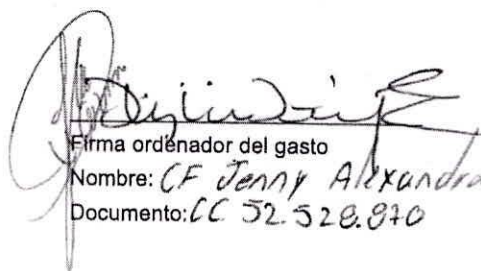 Firma ordenador del gasto
Nombre: CF Jenny Alexandra
Documento: CC 52.528.870